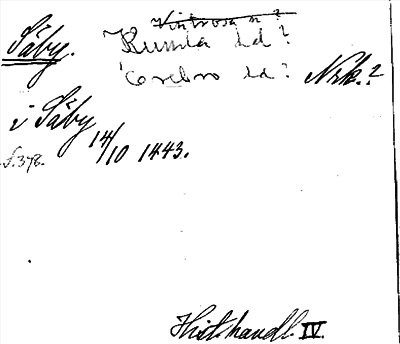 Vintrosa sn?
Säby. Kumla hd?
Örebro hd? Nrk.?
i Säby 14/10 1443.
S. 378.
Hist. handl. IV.